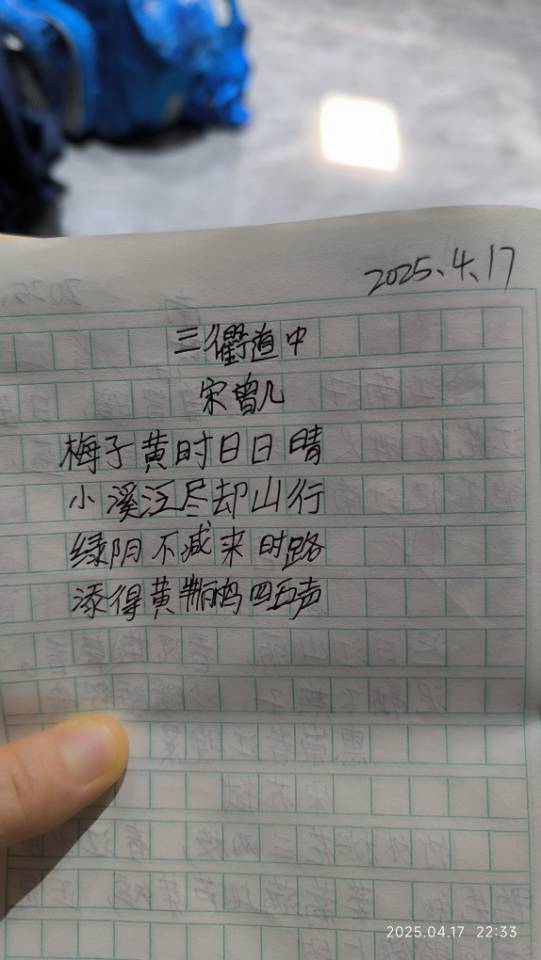 2025.4.17
三衢道中
宋曾几
梅子黄时日日晴
小溪泛尽却山行
绿阴不减来时路
添得黄鹂鸣四五声
2025.04.17 22:33